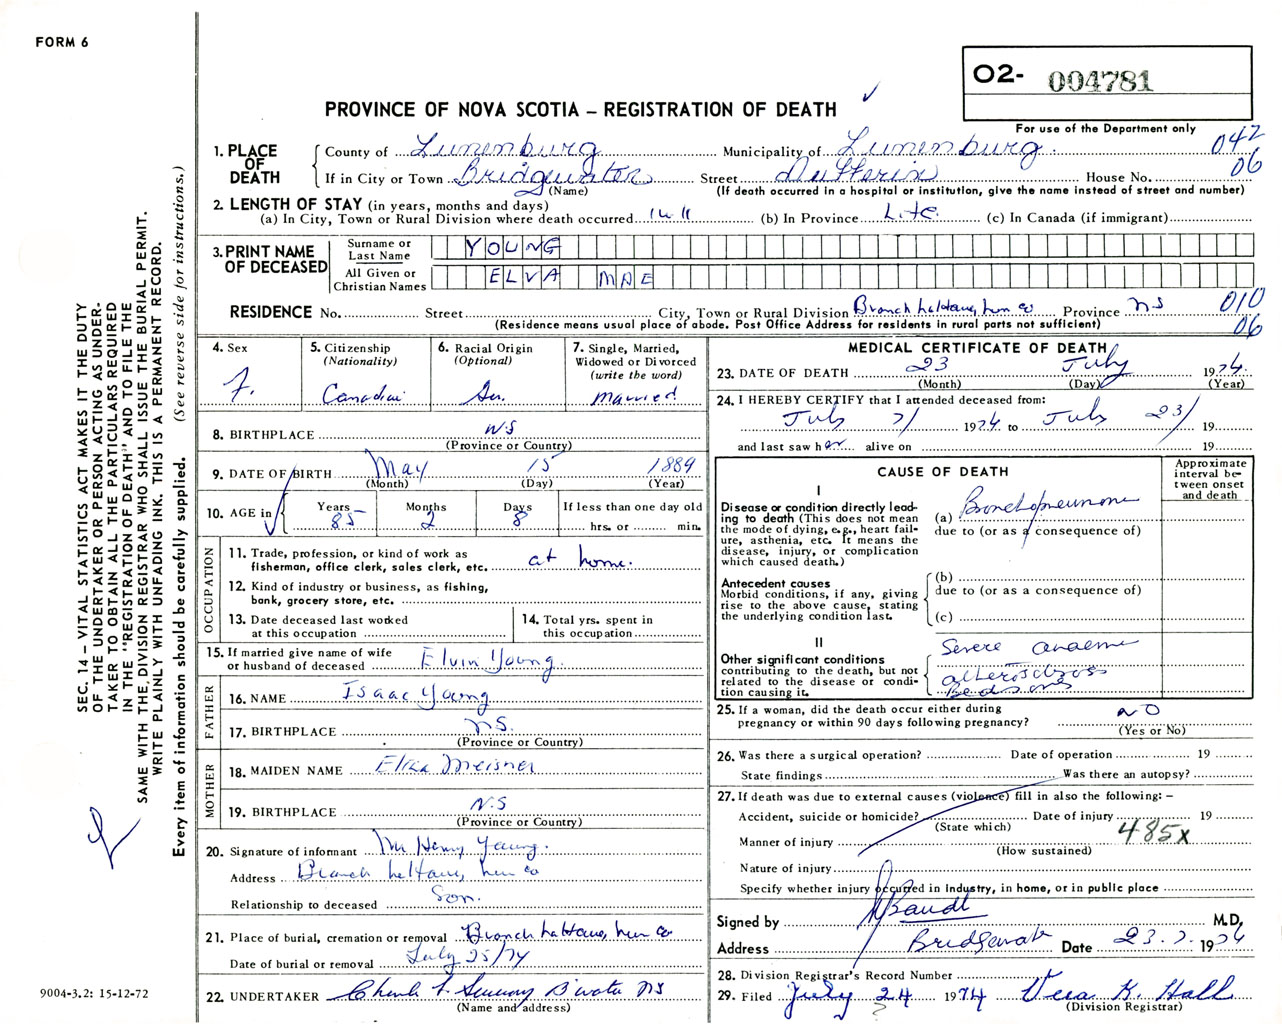 FORM 6
O2- 004781
PROVINCE OF NOVA SCOTIA – REGISTRATION OF DEATH
For use of the Department only
042
06
1. PLACE OF DEATH
County of Lunenburg Municipality of Lunenburg
If in City or Town Bridgewater Street Dufferin House No.
(Name) (If death occurred in a hospital or institution, give the name instead of street and number)
2. LENGTH OF STAY (in years, months and days)
(a) In City, Town or Rural Division where death occurred (b) In Province Life (c) In Canada (if immigrant)
3. PRINT NAME OF DECEASED
Surname or Last Name YOUNG
All Given or Christian Names ELVA MAE
RESIDENCE No. Street City, Town or Rural Division Branch LaHave, Lun Co Province NS
010
06
(Residence means usual place of abode. Post Office Address for residents in rural parts not sufficient)
4. Sex
F.
5. Citizenship
(Nationality)
Canadian
6. Racial Origin
(Optional)
7. Single, Married, Widowed or Divorced
(write the word)
Married
8. BIRTHPLACE NS
(Province or Country)
9. DATE OF BIRTH May 15 1889
(Month) (Day) (Year)
10. AGE in
Years Months Days If less than one day old
85 2 8 hrs. or min.
OCCUPATION
11. Trade, profession, or kind of work as
fisherman, office clerk, sales clerk, etc. at home.
12. Kind of industry or business, as fishing,
bank, grocery store, etc.
13. Date deceased last worked
at this occupation
14. Total yrs. spent in
this occupation
15. If married give name of wife
or husband of deceased Elvin Young.
FATHER
16. NAME Isaac Young
17. BIRTHPLACE NS.
(Province or Country)
MOTHER
18. MAIDEN NAME Eliza Meisner
19. BIRTHPLACE N.S
(Province or Country)
20. Signature of informant Mr Henry Young.
Address Branch LaHave, Lun Co
Relationship to deceased Son.
21. Place of burial, cremation or removal Branch LaHave, Lun Co
Date of burial or removal July 25/74
22. UNDERTAKER B'water NS
(Name and address)
MEDICAL CERTIFICATE OF DEATH
23. DATE OF DEATH 23 July 1974
(Month) (Day) (Year)
24. I HEREBY CERTIFY that I attended deceased from:
July 1974 to July 23/ 19
and last saw her alive on 19
CAUSE OF DEATH
Approximate interval between onset and death
I
Disease or condition directly leading to death (This does not mean the mode of dying, e.g., heart failure, asthenia, etc. It means the disease, injury, or complication which caused death.)
(a) Bronchopneumonia
due to (or as a consequence of)
Antecedent causes
Morbid conditions, if any, giving rise to the above cause, stating the underlying condition last.
(b)
due to (or as a consequence of)
(c)
II
Other significant conditions contributing to the death, but not related to the disease or condition causing it.
Severe anaemia
Bedsores
25. If a woman, did the death occur either during
pregnancy or within 90 days following pregnancy? NO
(Yes or No)
26. Was there a surgical operation? Date of operation 19
State findings Was there an autopsy?
27. If death was due to external causes (violence) fill in also the following: –
Accident, suicide or homicide? Date of injury 19
(State which)
485x
Manner of injury
(How sustained)
Nature of injury
Specify whether injury occurred in industry, in home, or in public place
Signed by M.D.
Address Bridgewater Date 23.7. 1974
28. Division Registrar's Record Number
29. Filed July 24 1974 Vera K. Hall
(Division Registrar)
SEC. 14 – VITAL STATISTICS ACT MAKES IT THE DUTY
OF THE UNDERTAKER OR PERSON ACTING AS UNDER-
TAKER TO OBTAIN ALL THE PARTICULARS REQUIRED
IN THE "REGISTRATION OF DEATH" AND TO FILE THE
SAME WITH THE DIVISION REGISTRAR WHO SHALL ISSUE THE BURIAL PERMIT.
WRITE PLAINLY WITH UNFADING INK. THIS IS A PERMANENT RECORD.
Every item of information should be carefully supplied. (See reverse side for instructions.)
9004-3.2: 15-12-72